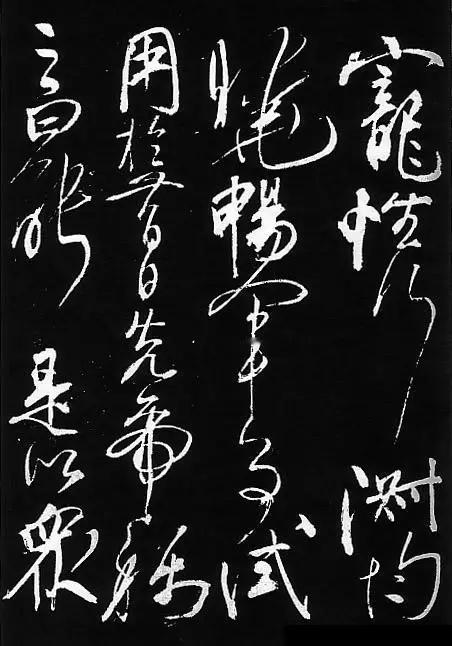 寵性行 淑均
曉暢軍事試
用於昔日先帝稱
之曰能 是以眾